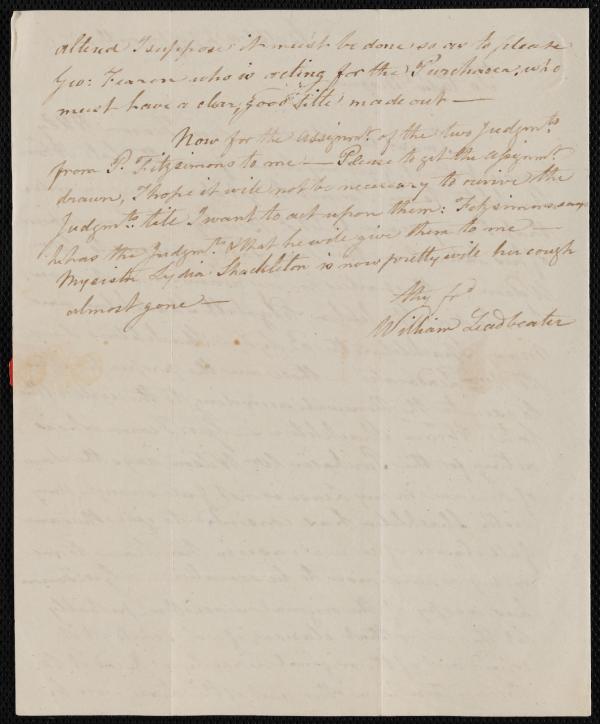 attend I suppose, it must be done so as to please
Geo: Fearon who is acting for the Purchaser, who
must have a clear, good Title, made out —
Now for the assignmt. of the two Judgmts.
from P. Fitzsimons to me — Please to get the assignmt.
drawn, I hope it will not be necessary to revive the
Judgmts. till I want to act upon them: Fitzsimons says
he has the Judgmts. & that he will give them to me —
My sister Lydia Shackleton is now pretty well her cough
almost gone —
thy frd.
William Leadbeater